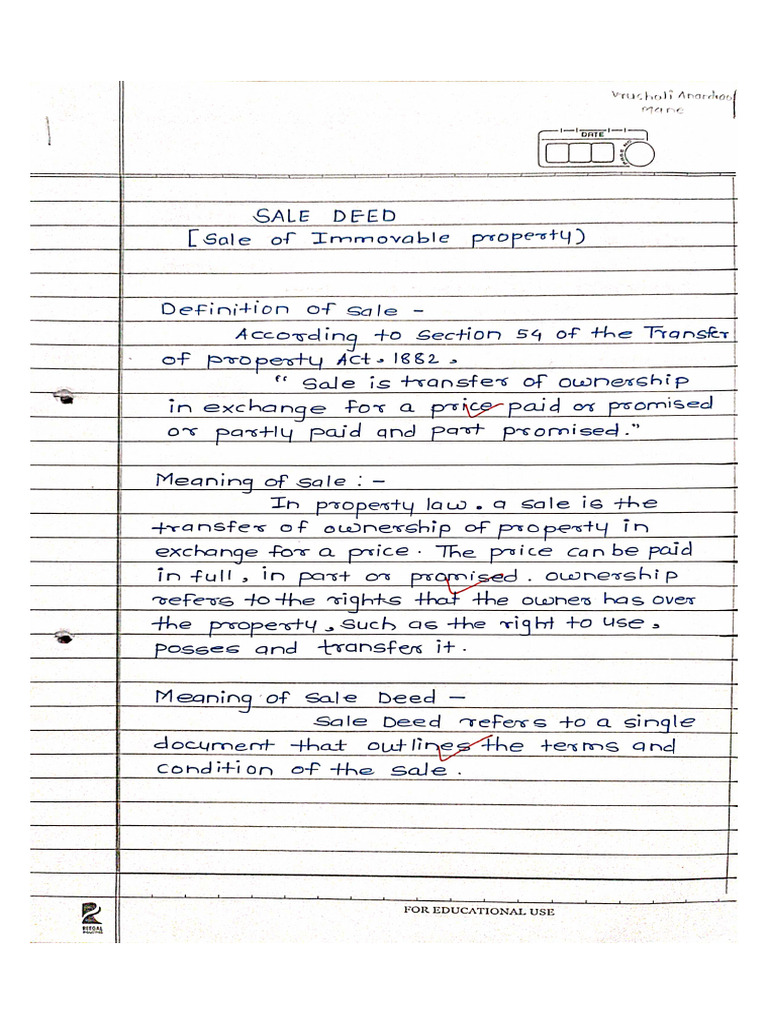 Vrushali Anandrao
Mane
DATE
SALE DEED
[Sale of Immovable property)
Definition of sale -
According to section 54 of the Transfer
of property Act, 1882,
" Sale is transfer of ownership
in exchange for a price paid or promised
or partly paid and part promised."
Meaning of sale : -
In property law. a sale is the
transfer of ownership of property in
exchange for a price. The price can be paid
in full, in part or promised. ownership
refers to the rights that the owner has over
the property, such as the right to use,
posses and transfer it.
Meaning of Sale Deed -
Sale Deed refers to a single
document that outlines the terms and
condition of the sale.
FOR EDUCATIONAL USE